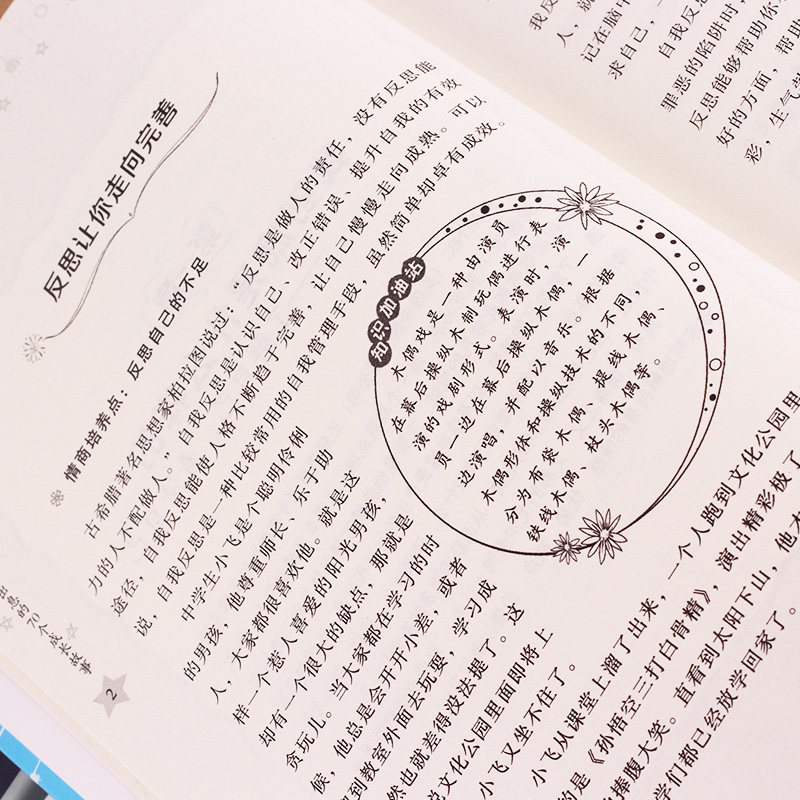 反思让你走向完善
情商培养点：反思自己的不足
古希腊著名思想家柏拉图说过：“反思是做人的责任，没有反思能
力的人不配做人。”自我反思是认识自己、改正错误、提升自我的有效
途径，自我反思能使人格不断趋于完善，让自己慢慢走向成熟。可以
说，自我反思是一种比较常用的自我管理手段，虽然简单却卓有成效。
中学生小飞是个聪明伶俐
的男孩，他尊重师长、乐于助
人，大家都很喜欢他。就是这
样一个惹人喜爱的阳光男孩，
却有一个很大的缺点，那就是
贪玩儿。当大家都在学习的时
候，他总是会开开小差，或者
跑到教室外面去玩耍，学习成
然也就差得没法提了。这
说文化公园里面即将上
小飞又坐不住了。
小飞从课堂上溜了出来，一个人跑到文化公园里
的是《孙悟空三打白骨精》，演出精彩极了
捧腹大笑。直看到太阳下山，他
学们都已经放学回家了。
知识加油站
木偶戏是一种由演员
在幕后操纵木制玩偶进行表
演的戏剧形式。表演时，演
员一边在幕后操纵木偶，一
边演唱，并配以音乐。根据
木偶形体和操纵技术的不同，
分为布袋木偶、提线木偶、
铁线木偶、杖头木偶等。
出息的70个成长故事
2
我反
人，就
记在脑中
求自己，
自我反思
罪恶的陷阱时，
反思能够帮助你
好的方面，帮助
彩，生气